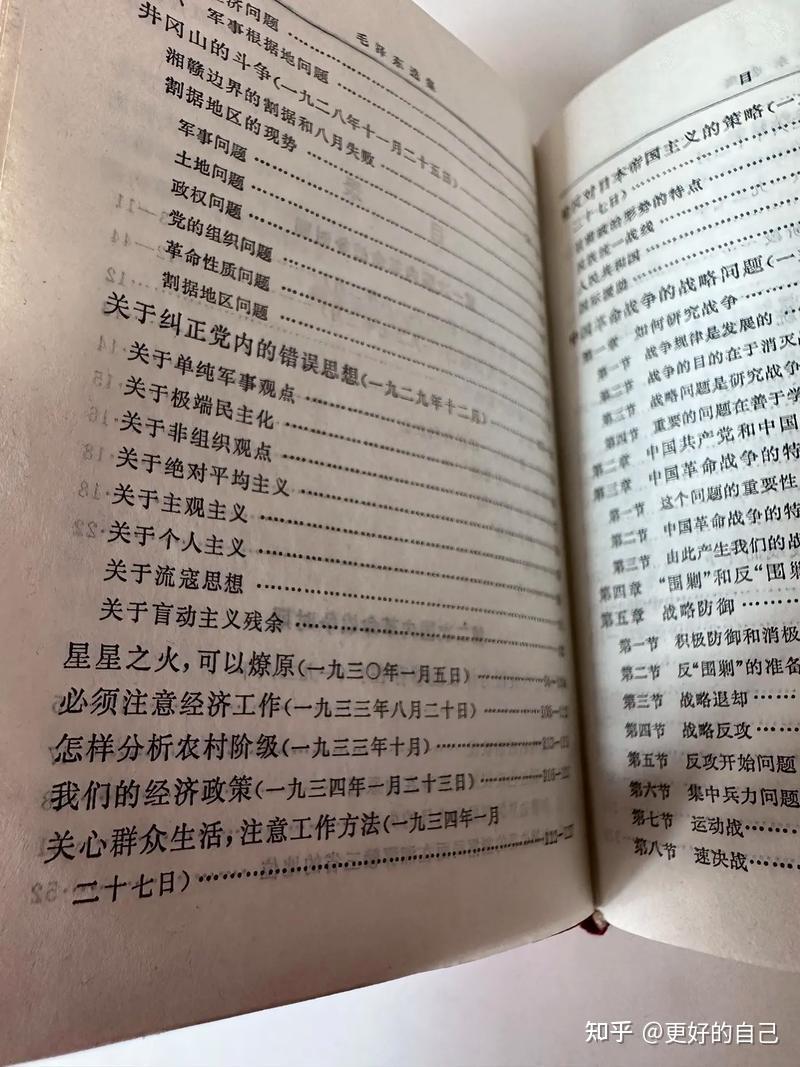 毛泽东选集
济问题
、军事根据地问题
井冈山的斗争(一九二八年十一月二十五日)
湘赣边界的割据和八月失败
割据地区的现势
军事问题
土地问题
政权问题
党的组织问题
革命性质问题
割据地区问题
关于纠正党内的错误思想(一九二九年十二月)
关于单纯军事观点
关于极端民主化
关于非组织观点
关于绝对平均主义
关于主观主义
关于个人主义
关于流寇思想
关于盲动主义残余
星星之火,可以燎原(一九三〇年一月五日)
必须注意经济工作(一九三三年八月二十日)
怎样分析农村阶级(一九三三年十月)
我们的经济政策(一九三四年一月二十三日)
关心群众生活,注意工作方法(一九三四年一月
二十七日)
目
反对日本帝国主义的策略(一
二十七日)
政治形势的特点
民族统一战线
人民共和国
国际援助
中国革命战争的战略问题(一
第一章 如何研究战争
第一节 战争规律是发展的
第二节 战争的目的在于消灭
第三节 战略问题是研究战争
第四节 重要的问题在善于学
第二章 中国共产党和中国
第三章 中国革命战争的特
第一节 这个问题的重要性
第二节 中国革命战争的特
第三节 由此产生我们的战
第四章 “围剿”和反“围剿
第五章 战略防御
第一节 积极防御和消极
第二节 反“围剿”的准备
第三节 战略退却
第四节 战略反攻
第五节 反攻开始问题
第六节 集中兵力问题
第七节 运动战
第八节 速决战
知乎 @更好的自己